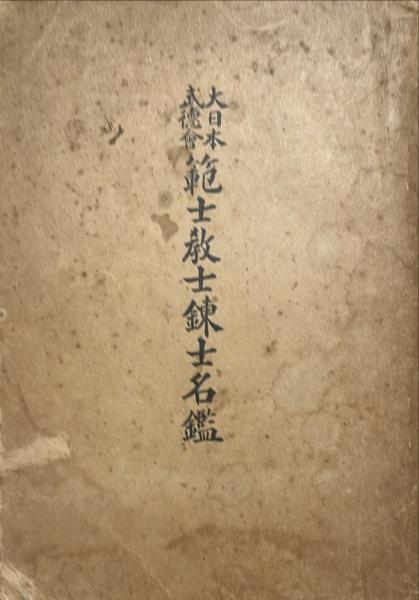 大日本
武德會
範士教士錬士名鑑